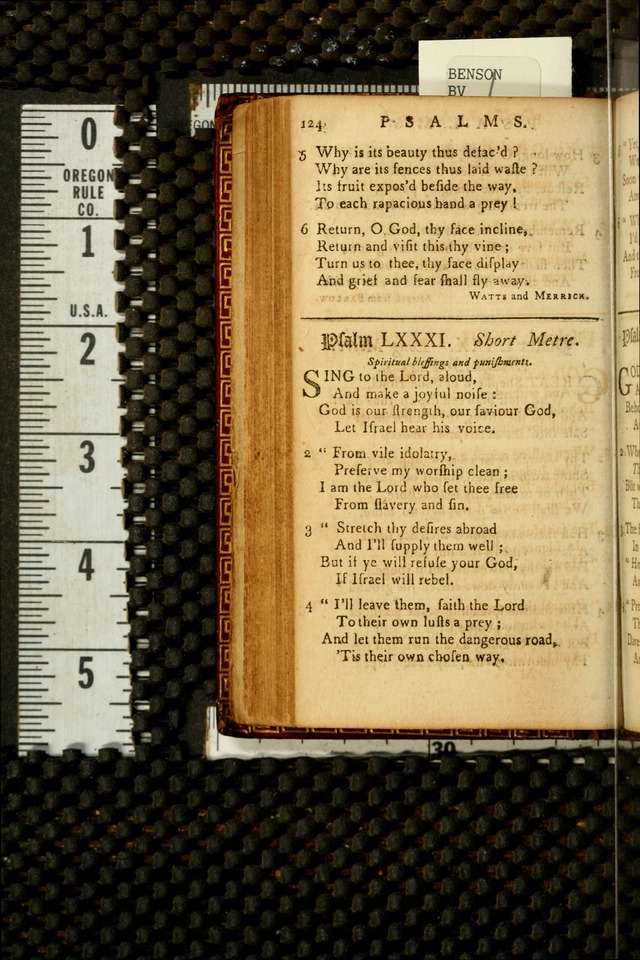 BENSON
BV
0
OREGON
RULE
CO.
1
U.S.A.
2
3
4
5
30
124
PSALMS.
5 Why is its beauty thus defac'd ?
Why are its fences thus laid waſte ?
Its fruit expos'd beſide the way,
To each rapacious hand a prey !
6 Return, O God, thy face incline,
Return and viſit this thy vine ;
Turn us to thee, thy face diſplay
And grief and fear ſhall fly away.
WATTS and MERRICK.
Pſalm LXXXI. Short Metre.
Spiritual bleſſings and puniſhments.
SING to the Lord, aloud,
And make a joyful noiſe :
God is our ſtrength, our ſaviour God,
Let Iſrael hear his voice.
2 “ From vile idolatry,
Preſerve my worſhip clean ;
I am the Lord who ſet thee free
From ſlavery and ſin.
3 “ Stretch thy deſires abroad
And I'll ſupply them well ;
But if ye will refuſe your God,
If Iſrael will rebel.
4 “ I'll leave them, ſaith the Lord
To their own luſts a prey ;
And let them run the dangerous road,
'Tis their own choſen way.